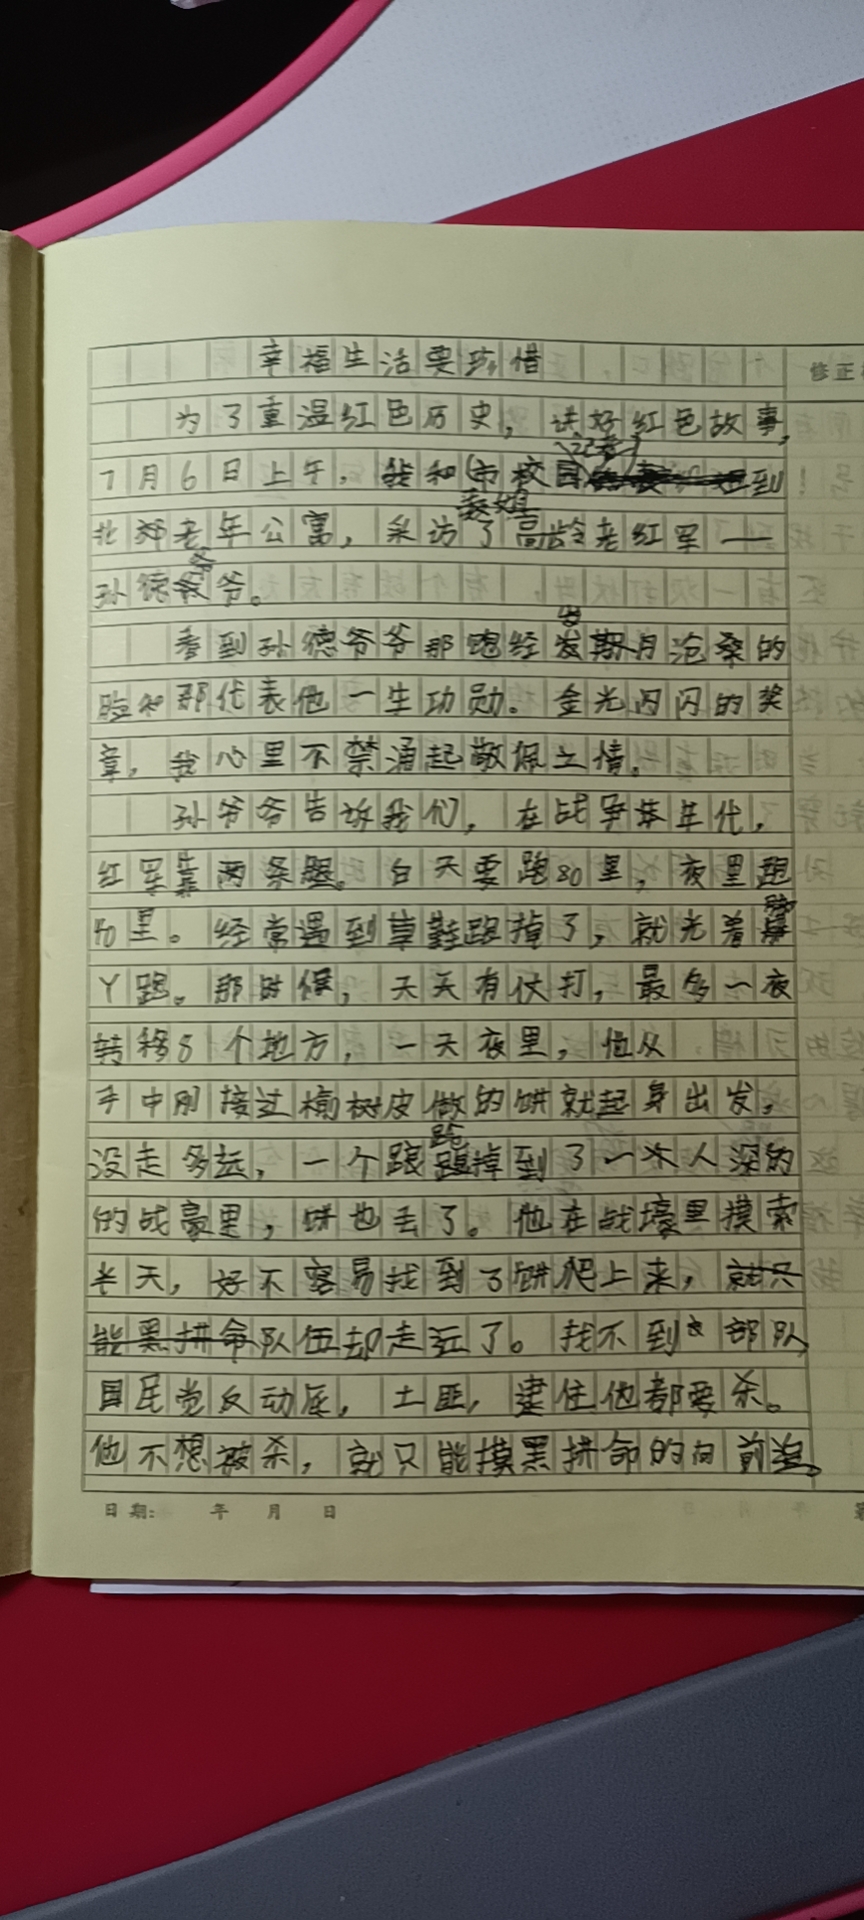 幸福生活要珍惜
修正
为了重温红色历史，讲好红色故事，
7月6日上午，我和市校园记者到
北郊老年公寓，采访了高龄老红军——
孙德爷爷。
看到孙德爷爷那饱经岁月沧桑的
脸和那代表他一生功勋。金光闪闪的奖
章，我心里不禁涌起敬佩之情。
孙爷爷告诉我们，在战争年代，
红军靠两条腿。白天要跑80里，夜里跑
70里。经常遇到草鞋跑掉了，就光着脚
丫跑。那时候，天天有仗打，最多一夜
转移8个地方，一天夜里，他从
手中刚接过榆树皮做的饼就起身出发，
没走多远，一个踉跄掉到了一个人深的
的战豪里，饼也丢了。他在战壕里摸索
半天，好不容易找到了饼爬上来，就只
能黑拼命队伍却走远了。找不到部队，
国民党反动派，土匪，逮住他都要杀。
他不想被杀，就只能摸黑拼命的向前追。
日期： 年 月 日